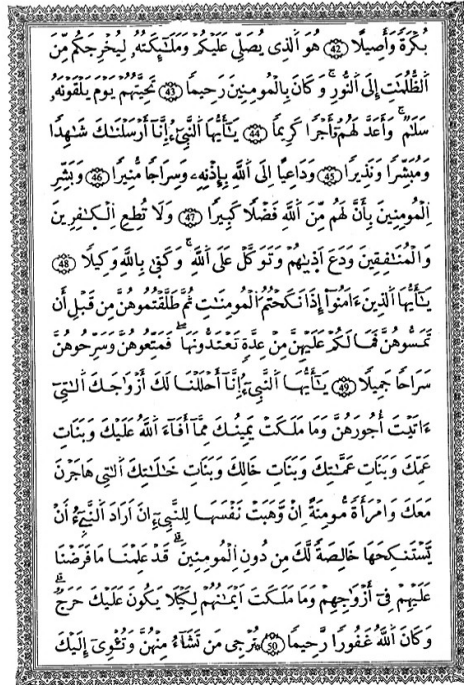 بُكۡرَةٗ وَأَصِيلًا 42 هُوَ ٱلَّذِي يُصَلِّي عَلَيۡكُمۡ وَمَلَٰٓئِكَتُهُۥ لِيُخۡرِجَكُم مِّنَ
ٱلظُّلُمَٰتِ إِلَى ٱلنُّورِۚ وَكَانَ بِالۡمُومِنِينَ رَحِيمٗا 43 تَحِيَّتُهُمۡ يَوۡمَ يَلۡقَوۡنَهُۥ
سَلَٰمٞۚ وَأَعَدَّ لَهُمۡ أَجۡرٗا كَرِيمٗا 44 يَٰٓأَيُّهَا ٱلنَّبِيٓءُ إِنَّآ أَرۡسَلۡنَٰكَ شَٰهِدٗا
وَمُبَشِّرٗا وَنَذِيرٗا 45 وَدَاعِيًا اِلَى ٱللَّهِ بِإِذۡنِهِۦ وَسِرَاجٗا مُّنِيرٗا 46 وَبَشِّرِ
اِلۡمُومِنِينَ بِأَنَّ لَهُم مِّنَ ٱللَّهِ فَضۡلٗا كَبِيرٗا 47 وَلَا تُطِعِ اِلۡكَٰفِرِينَ
وَالۡمُنَٰفِقِينَ وَدَعَ اَذٜىٰهُمۡ وَتَوَكَّلۡ عَلَى ٱللَّهِۚ وَكَفٜىٰ بِاللَّهِ وَكِيلٗا 48
يَٰٓأَيُّهَا ٱلَّذِينَ ءَامَنُوٓاْ إِذَا نَكَحۡتُمُ ٱلۡمُومِنَٰتِ ثُمَّ طَلَّقۡتُمُوهُنَّ مِن قَبۡلِ أَن
تَمَسُّوهُنَّ فَمَا لَكُمۡ عَلَيۡهِنَّ مِنۡ عِدَّةٖ تَعۡتَدُّونَهَاۖ فَمَتِّعُوهُنَّ وَسَرِّحُوهُنَّ
سَرَاحٗا جَمِيلٗا 49 يَٰٓأَيُّهَا ٱلنَّبِيٓءُ إِنَّآ أَحۡلَلۡنَا لَكَ أَزۡوَٰجَكَ ٱلَّٰتِيٓ
ءَاتَيۡتَ أُجُورَهُنَّ وَمَا مَلَكَتۡ يَمِينُكَ مِمَّآ أَفَآءَ ٱللَّهُ عَلَيۡكَ وَبَنَاتِ
عَمِّكَ وَبَنَاتِ عَمَّٰتِكَ وَبَنَاتِ خَالِكَ وَبَنَاتِ خَٰلَٰتِكَ ٱلَّٰتِي هَاجَرۡنَ
مَعَكَ وَامۡرَأَةٗ مُّومِنَةً اِنۡ وَّهَبَتۡ نَفۡسَهَا لِلنَّبِيٓءِ انَ اَرَادَ ٱلنَّبِيٓءُ أَنۡ
يَّسۡتَنكِحَهَا خَالِصَةٗ لَّكَ مِن دُونِ اِلۡمُومِنِينَۗ قَدۡ عَلِمۡنَا مَا فَرَضۡنَا
عَلَيۡهِمۡ فِيٓ أَزۡوَٰجِهِمۡ وَمَا مَلَكَتَ اَيۡمَٰنُهُمۡ لِكَيۡلَا يَكُونَ عَلَيۡكَ حَرَجٞۗ
وَكَانَ ٱللَّهُ غَفُورٗا رَّحِيمٗا 50 تُرۡجِي مَن تَشَآءُ مِنۡهُنَّ وَتُـْٔوِيٓ إِلَيۡكَ